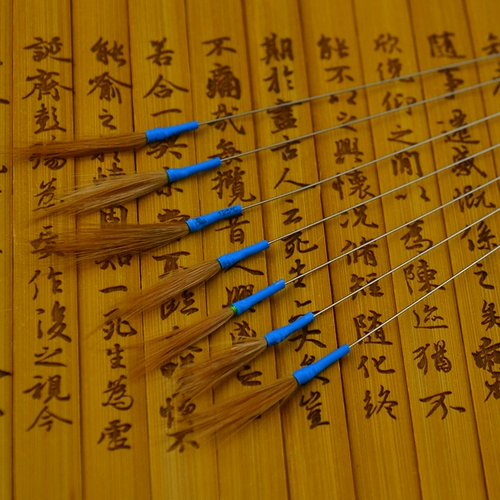 隨事遷感慨係之矣
欣俛仰之間以為陳迹猶不
能不以之興懷況脩短隨化終
期於盡古人云死生亦大矣豈
不痛哉每攬昔人興感
若合一契未嘗不臨文嗟悼不
能喻之於懷固知一死生為虛
誕齊彭殤為妄作後之視今